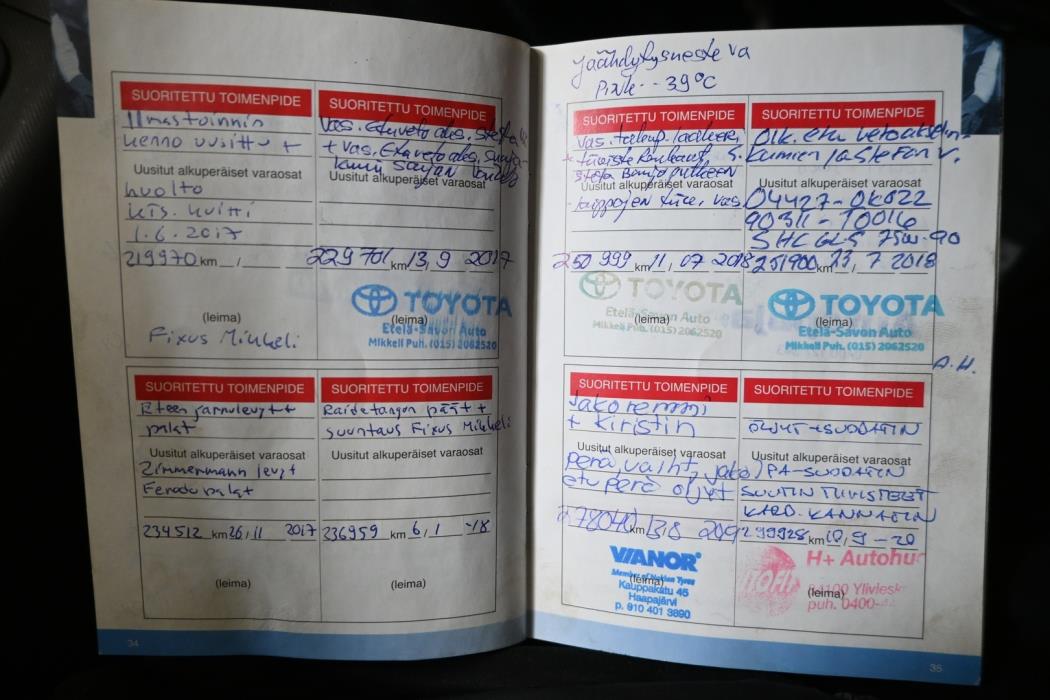 SUORITETTU TOIMENPIDE
Ilmastoinnin
kenno uusittu +
Uusitut alkuperäiset varaosat
huolto
kts. kuitti
1.6.2017
219970 km / /
(leima)
Fixus Mikkeli
SUORITETTU TOIMENPIDE
Vas. etuvetoaks.
+ vas. etuvetoaks. suoja-
kumi sarjan
Uusitut alkuperäiset varaosat
229701 km 13, 9 2017
TOYOTA
(leima)
Etelä-Savon Auto
Mikkeli Puh. (015) 2062520
SUORITETTU TOIMENPIDE
Eteen jarrulevyt +
palat
Uusitut alkuperäiset varaosat
Zimmermann levyt
Ferodo palat
234512 km 26/11 2017
(leima)
SUORITETTU TOIMENPIDE
Raidetangon päät +
suuntaus Fixus Mikkeli
Uusitut alkuperäiset varaosat
236959 km 6/1 -18
(leima)
34
Jäähdytysneste va
-39°C
SUORITETTU TOIMENPIDE
Vas.
Uusitut alkuperäiset varaosat
vas.
250 999 km 11, 07 2018
TOYOTA
(leima)
Etelä-Savon Auto
Mikkeli Puh. (015) 2062520
SUORITETTU TOIMENPIDE
Oik. etu vetoakselin-
kumien ja stefan v.
Uusitut alkuperäiset varaosat
04427-0K022
90311-T0016
SHC GLS 75W-90
251900 km 23, 7 2018
TOYOTA
(leima)
Etelä-Savon Auto
Mikkeli Puh. (015) 2062520
A.H.
SUORITETTU TOIMENPIDE
Jakoremmi
+ kiristin
Uusitut alkuperäiset varaosat
perä vaiht. jako
etu perä öljyt
278040 km 13.8 2019
VIANOR
Member of Nokian Tyres
(leima)
Kauppakatu 45
Haapajärvi
p. 010 401 3890
SUORITETTU TOIMENPIDE
ÖLJYT + SUODATIN
Uusitut alkuperäiset varaosat
PA-SUODATIN
SUUTIN TIIVISTEET
KARD. KANNATIN
299925 km 10, 9-20
H+ Autohu
84100 Ylivieska
(leima)
puh. 0400-
35